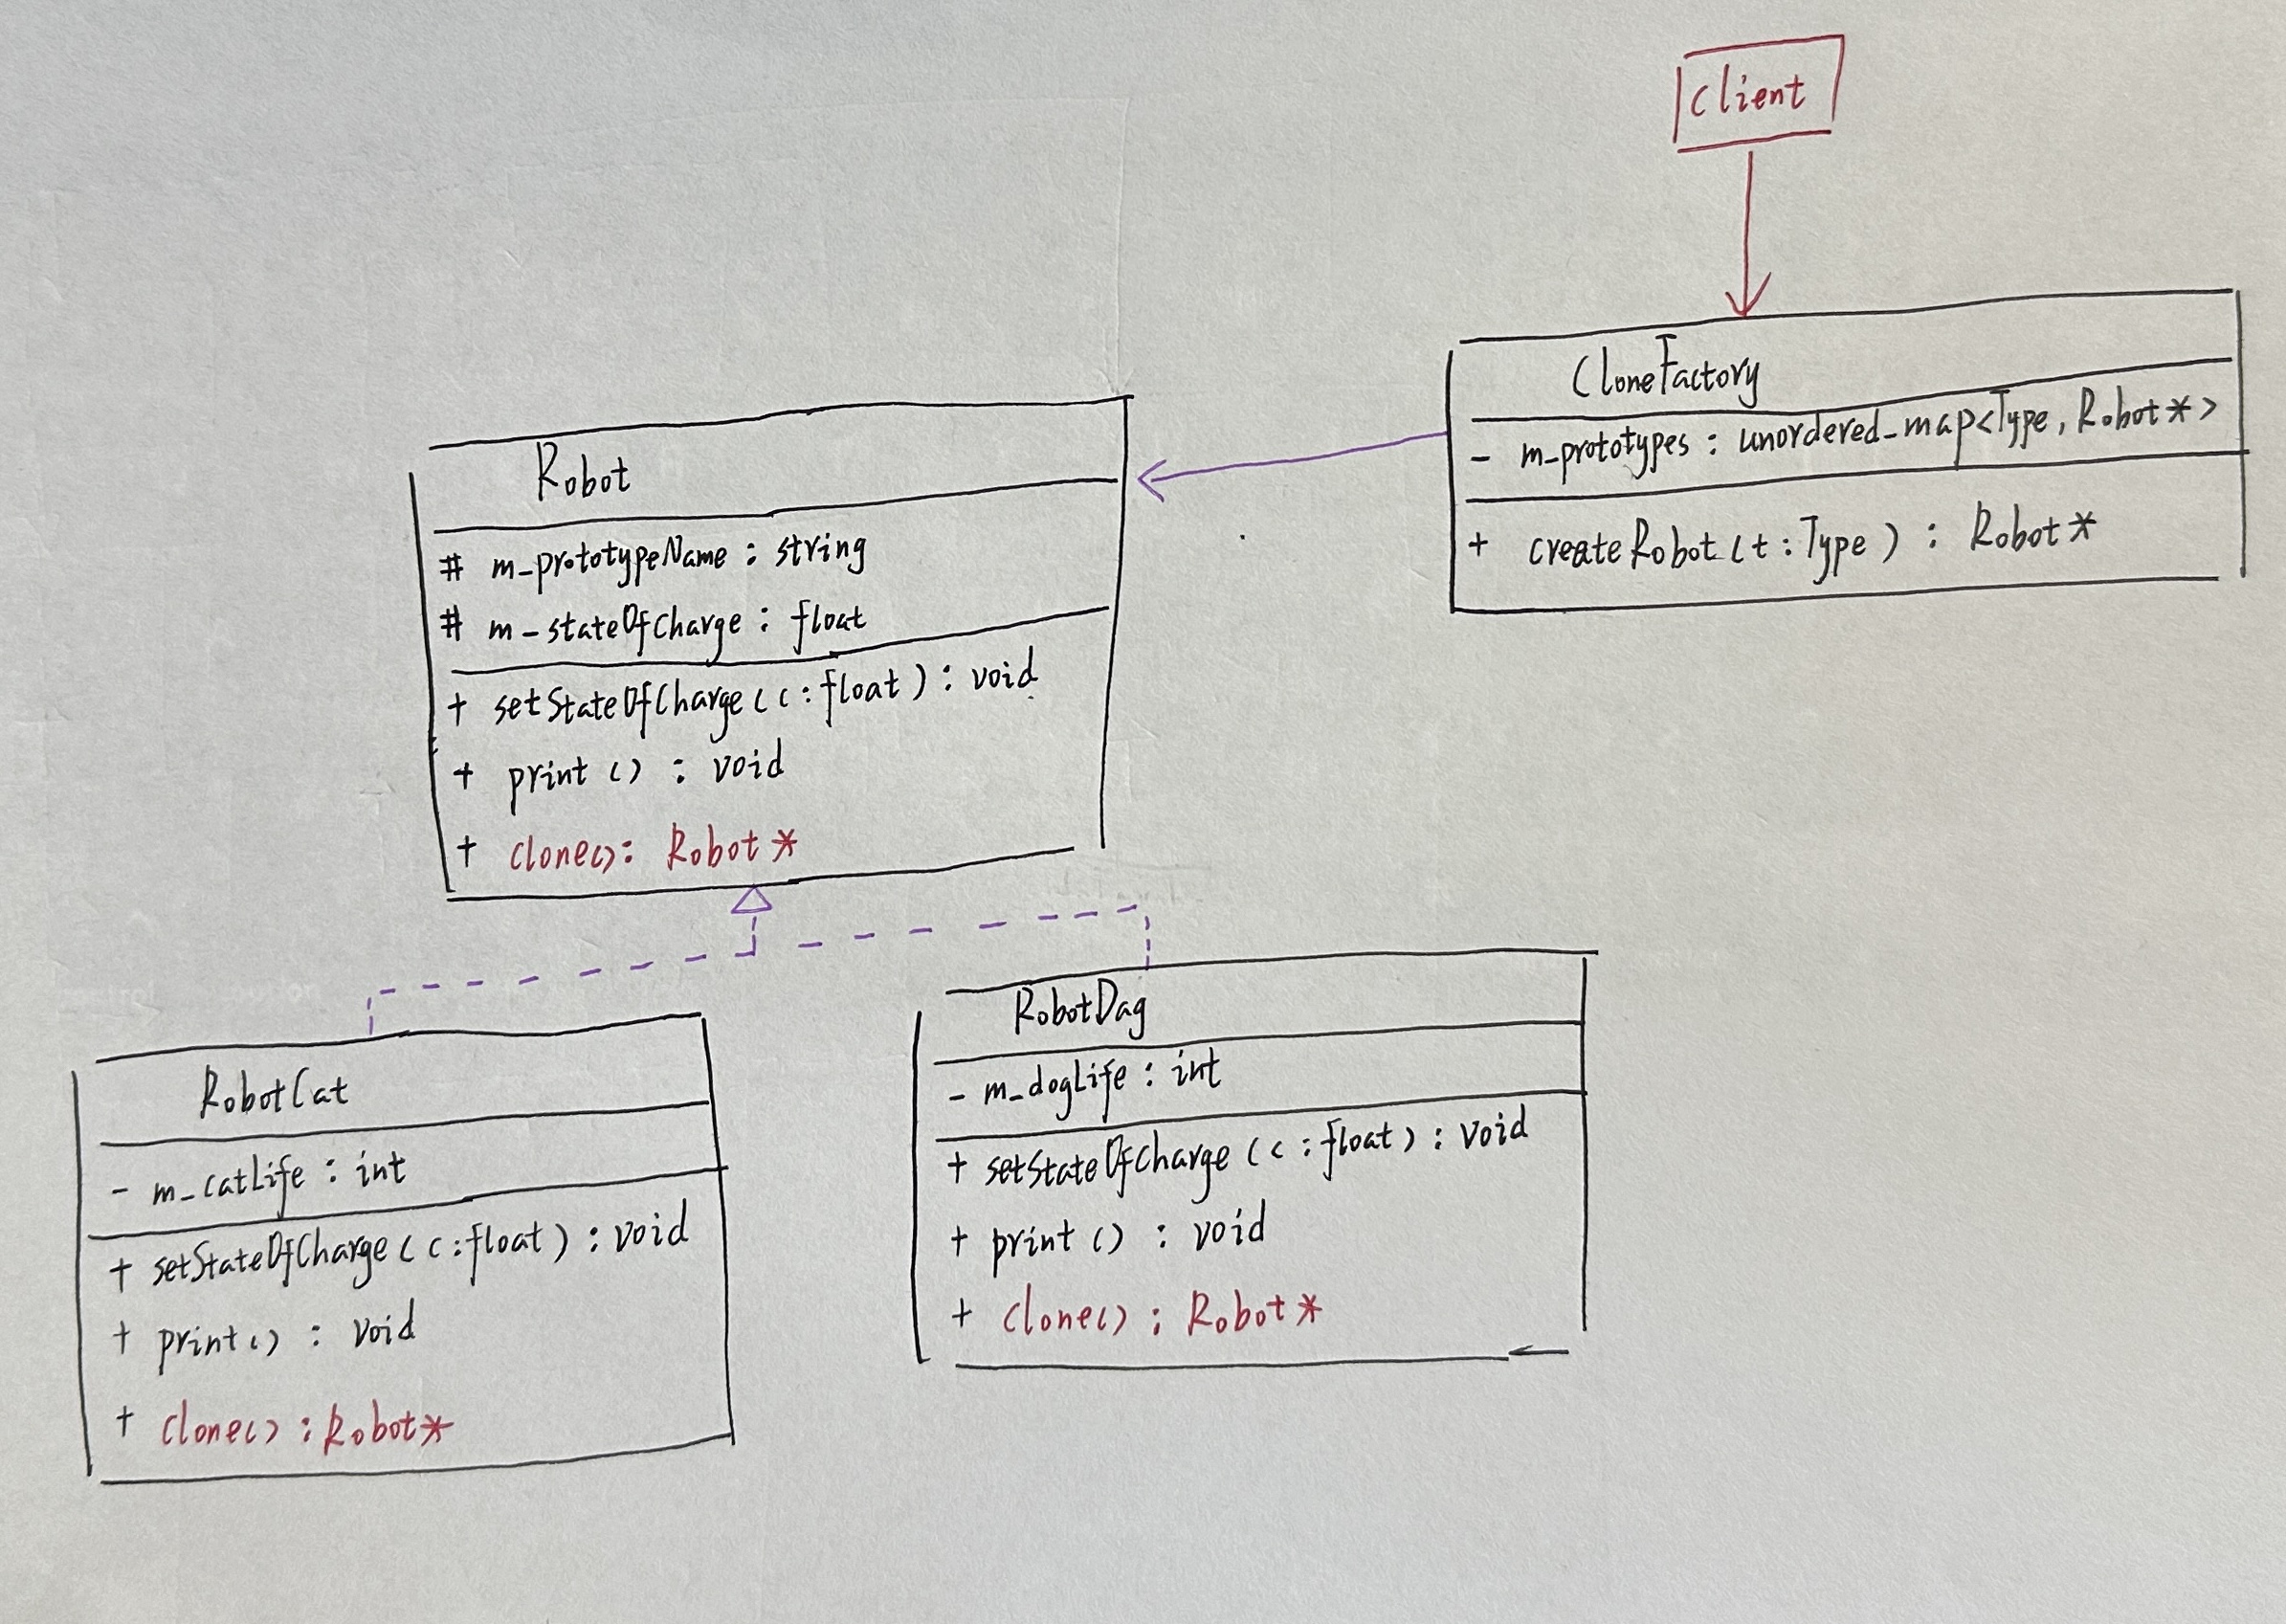 client
CloneFactory
- m_prototypes : unordered_map<Type, Robot*>
+ createRobot(t:Type) : Robot*
Robot
# m_prototypeName : string
# m_stateOfCharge : float
+ setStateOfCharge(c:float) : void
+ print() : void
+ clone(): Robot*
RobotCat
- m_catLife : int
+ setStateOfCharge(c:float) : void
+ print() : void
+ clone() : Robot*
RobotDag
- m_dogLife : int
+ setStateOfCharge(c:float) : void
+ print() : void
+ clone() : Robot*